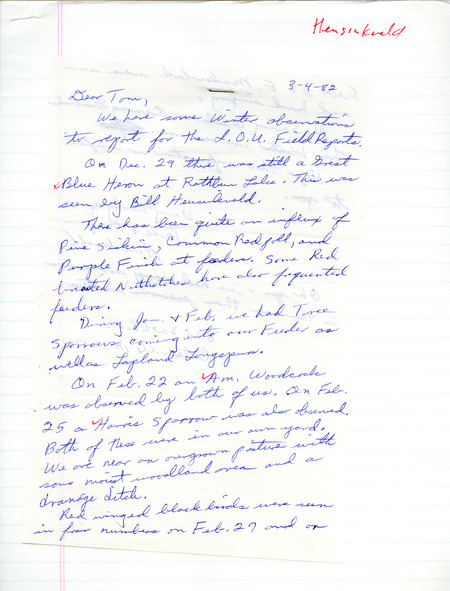 Heusinkveld
3-4-82
Dear Tom,
We have some Winter observations
to report for the I.O.U. Field Reports.
On Dec. 29 there was still a Great
Blue Heron at Rathbun Lake. This was
seen by Bill Heusinkveld.
There has been quite an influx of
Pine Siskin, Common Redpoll, and
Purple Finch at feeders. Some Red
breasted Nuthatches have also frequented
feeders.
During Jan. & Feb. we had Tree
Sparrows coming into our Feeder as
well as Lapland Longspurs.
On Feb. 22 an Am. Woodcock
was observed by both of us. On Feb.
25 a Harris Sparrow was also observed.
Both of these were in our own yard.
We are near an overgrown pasture with
some moist woodland area and a
drainage ditch.
Red winged blackbirds were seen
in four numbers on Feb. 27 and on